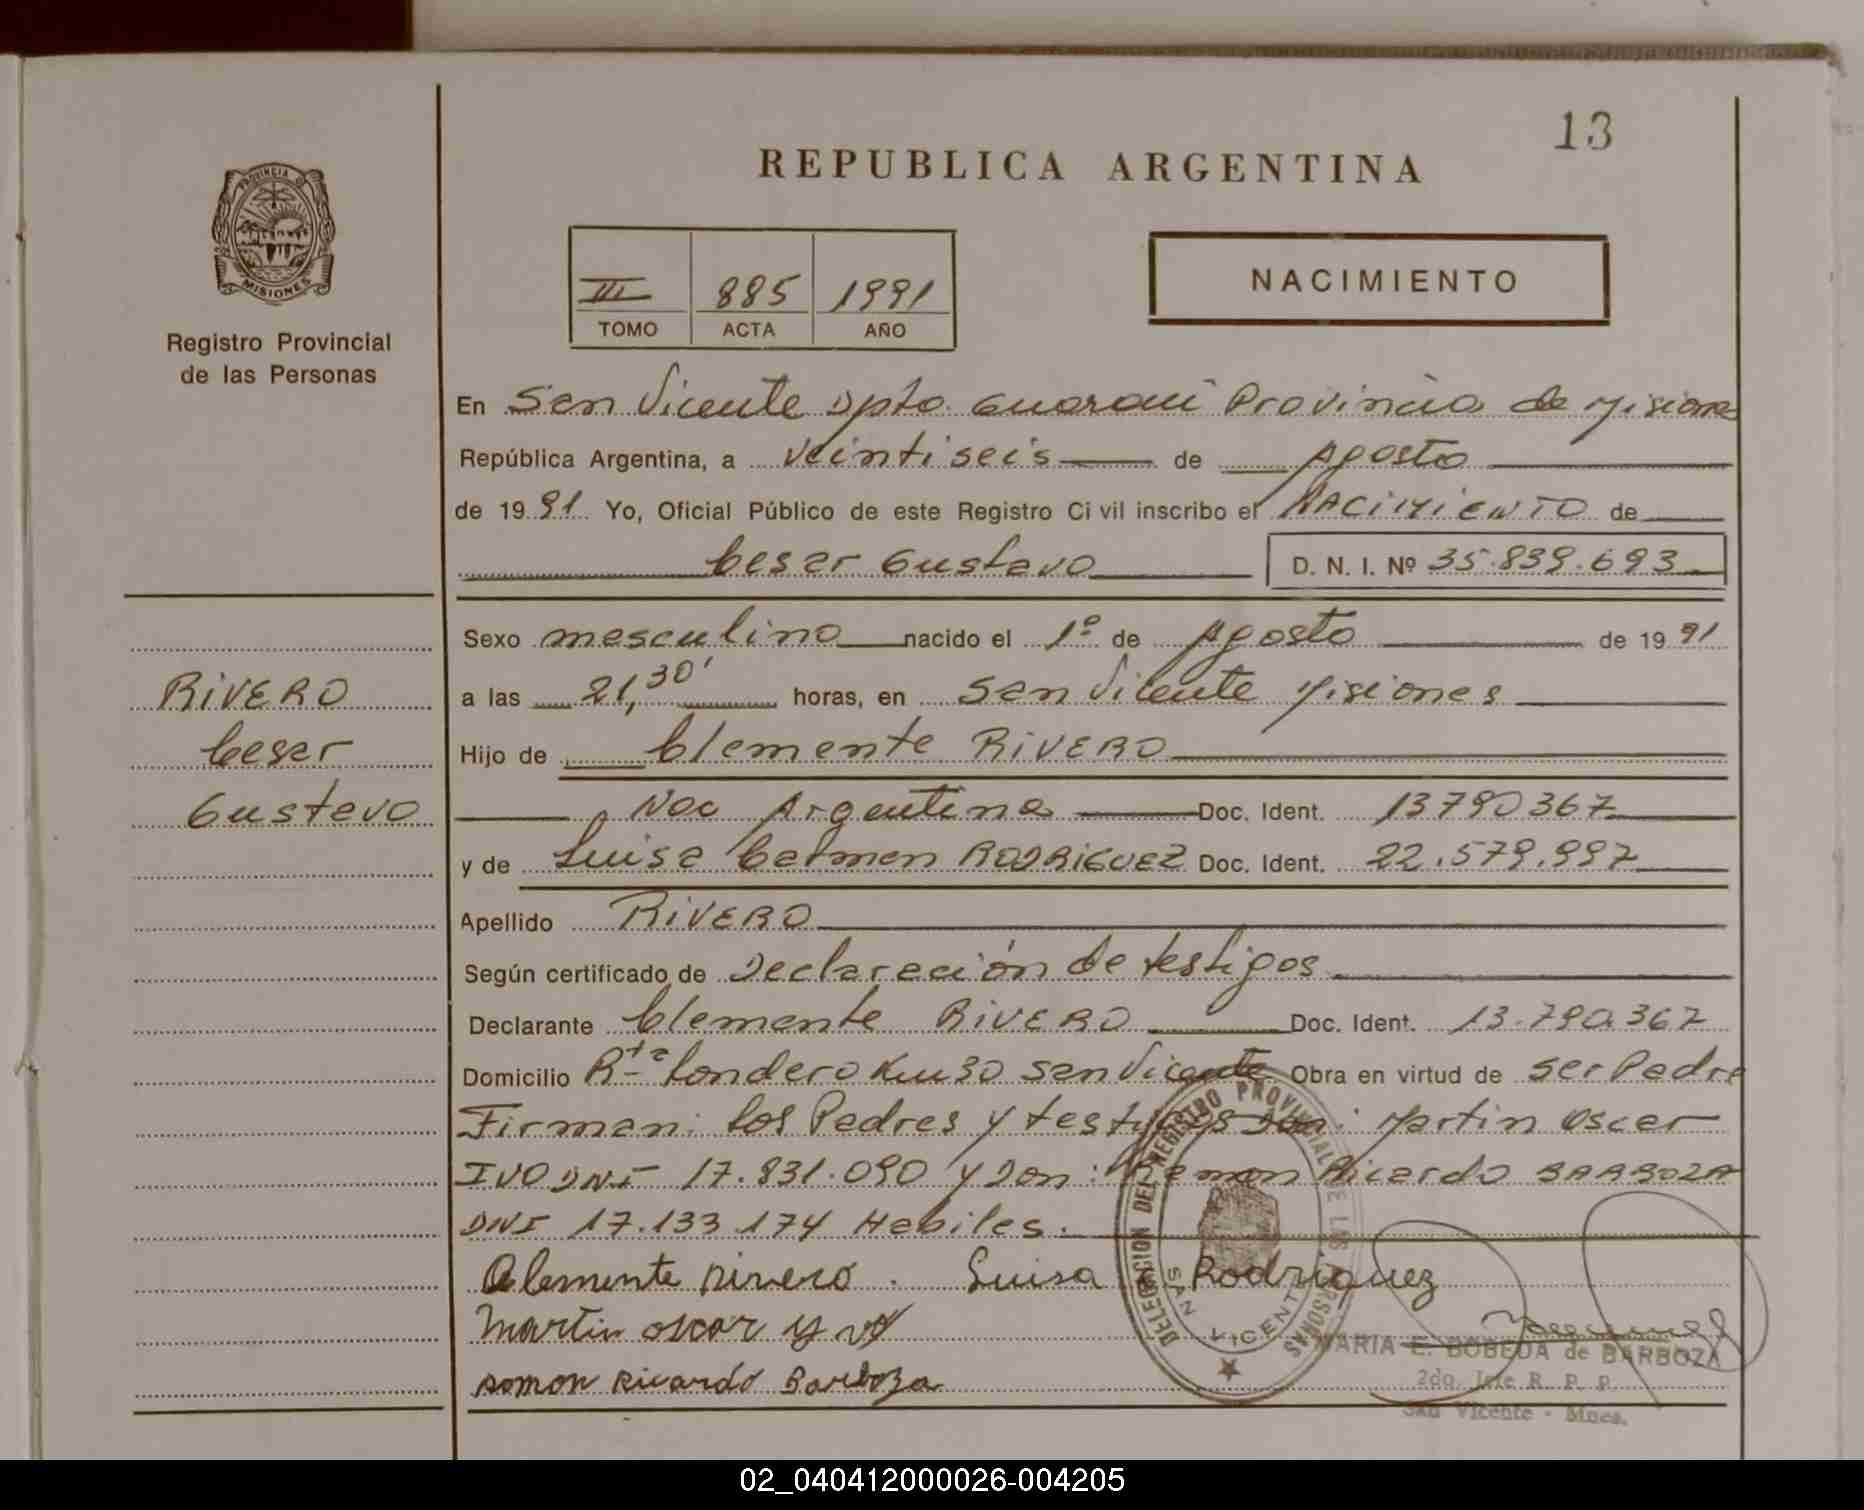 13
REPUBLICA ARGENTINA
PROVINCIA D
MISIONES
Registro Provincial
de las Personas
III 885 1991
TOMO ACTA AÑO
NACIMIENTO
En San Vicente Dpto. Guaraní Provincia de Misiones
República Argentina, a veintiseis de Agosto
de 1991 Yo, Oficial Público de este Registro Civil inscribo el NACIMIENTO de
Cesar Gustavo D. N. I. Nº 35.839.693
Sexo masculino nacido el 1º de Agosto de 1991
a las 21,30' horas, en San Vicente Misiones
Hijo de Clemente RIVERO
Nac Argentina Doc. Ident. 13790367
y de Luisa Carmen RODRIGUEZ Doc. Ident. 22.579.997
Apellido RIVERO
Según certificado de Declaración de testigos
Declarante Clemente RIVERO Doc. Ident. 13.790.367
Domicilio Rta Londero Km 30 San Vicente Obra en virtud de ser Padre
Firman: los Padres y testigos Don: Martin Oscar
IVO DNI 17.831.090 y Don: Ramon Ricardo BARBOZA
DNI 17.133.174 Habiles.
Clemente Rivero. Luisa Rodriguez
Martin oscar y vo
Romon Ricardo Barboza
RIVERO
Cesar
Gustavo
DELEGACION DEL REGISTRO PROVINCIAL DE LAS PERSONAS
SAN VICENTE
MARIA E. BOBEDA de BARBOZA
2do. Jefe R. P. P.
San Vicente - Mnes.
02_040412000026-004205